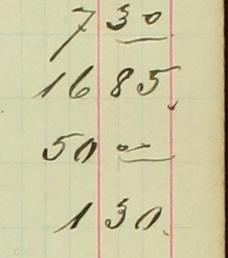 7 30
16 85
50 00
1 30